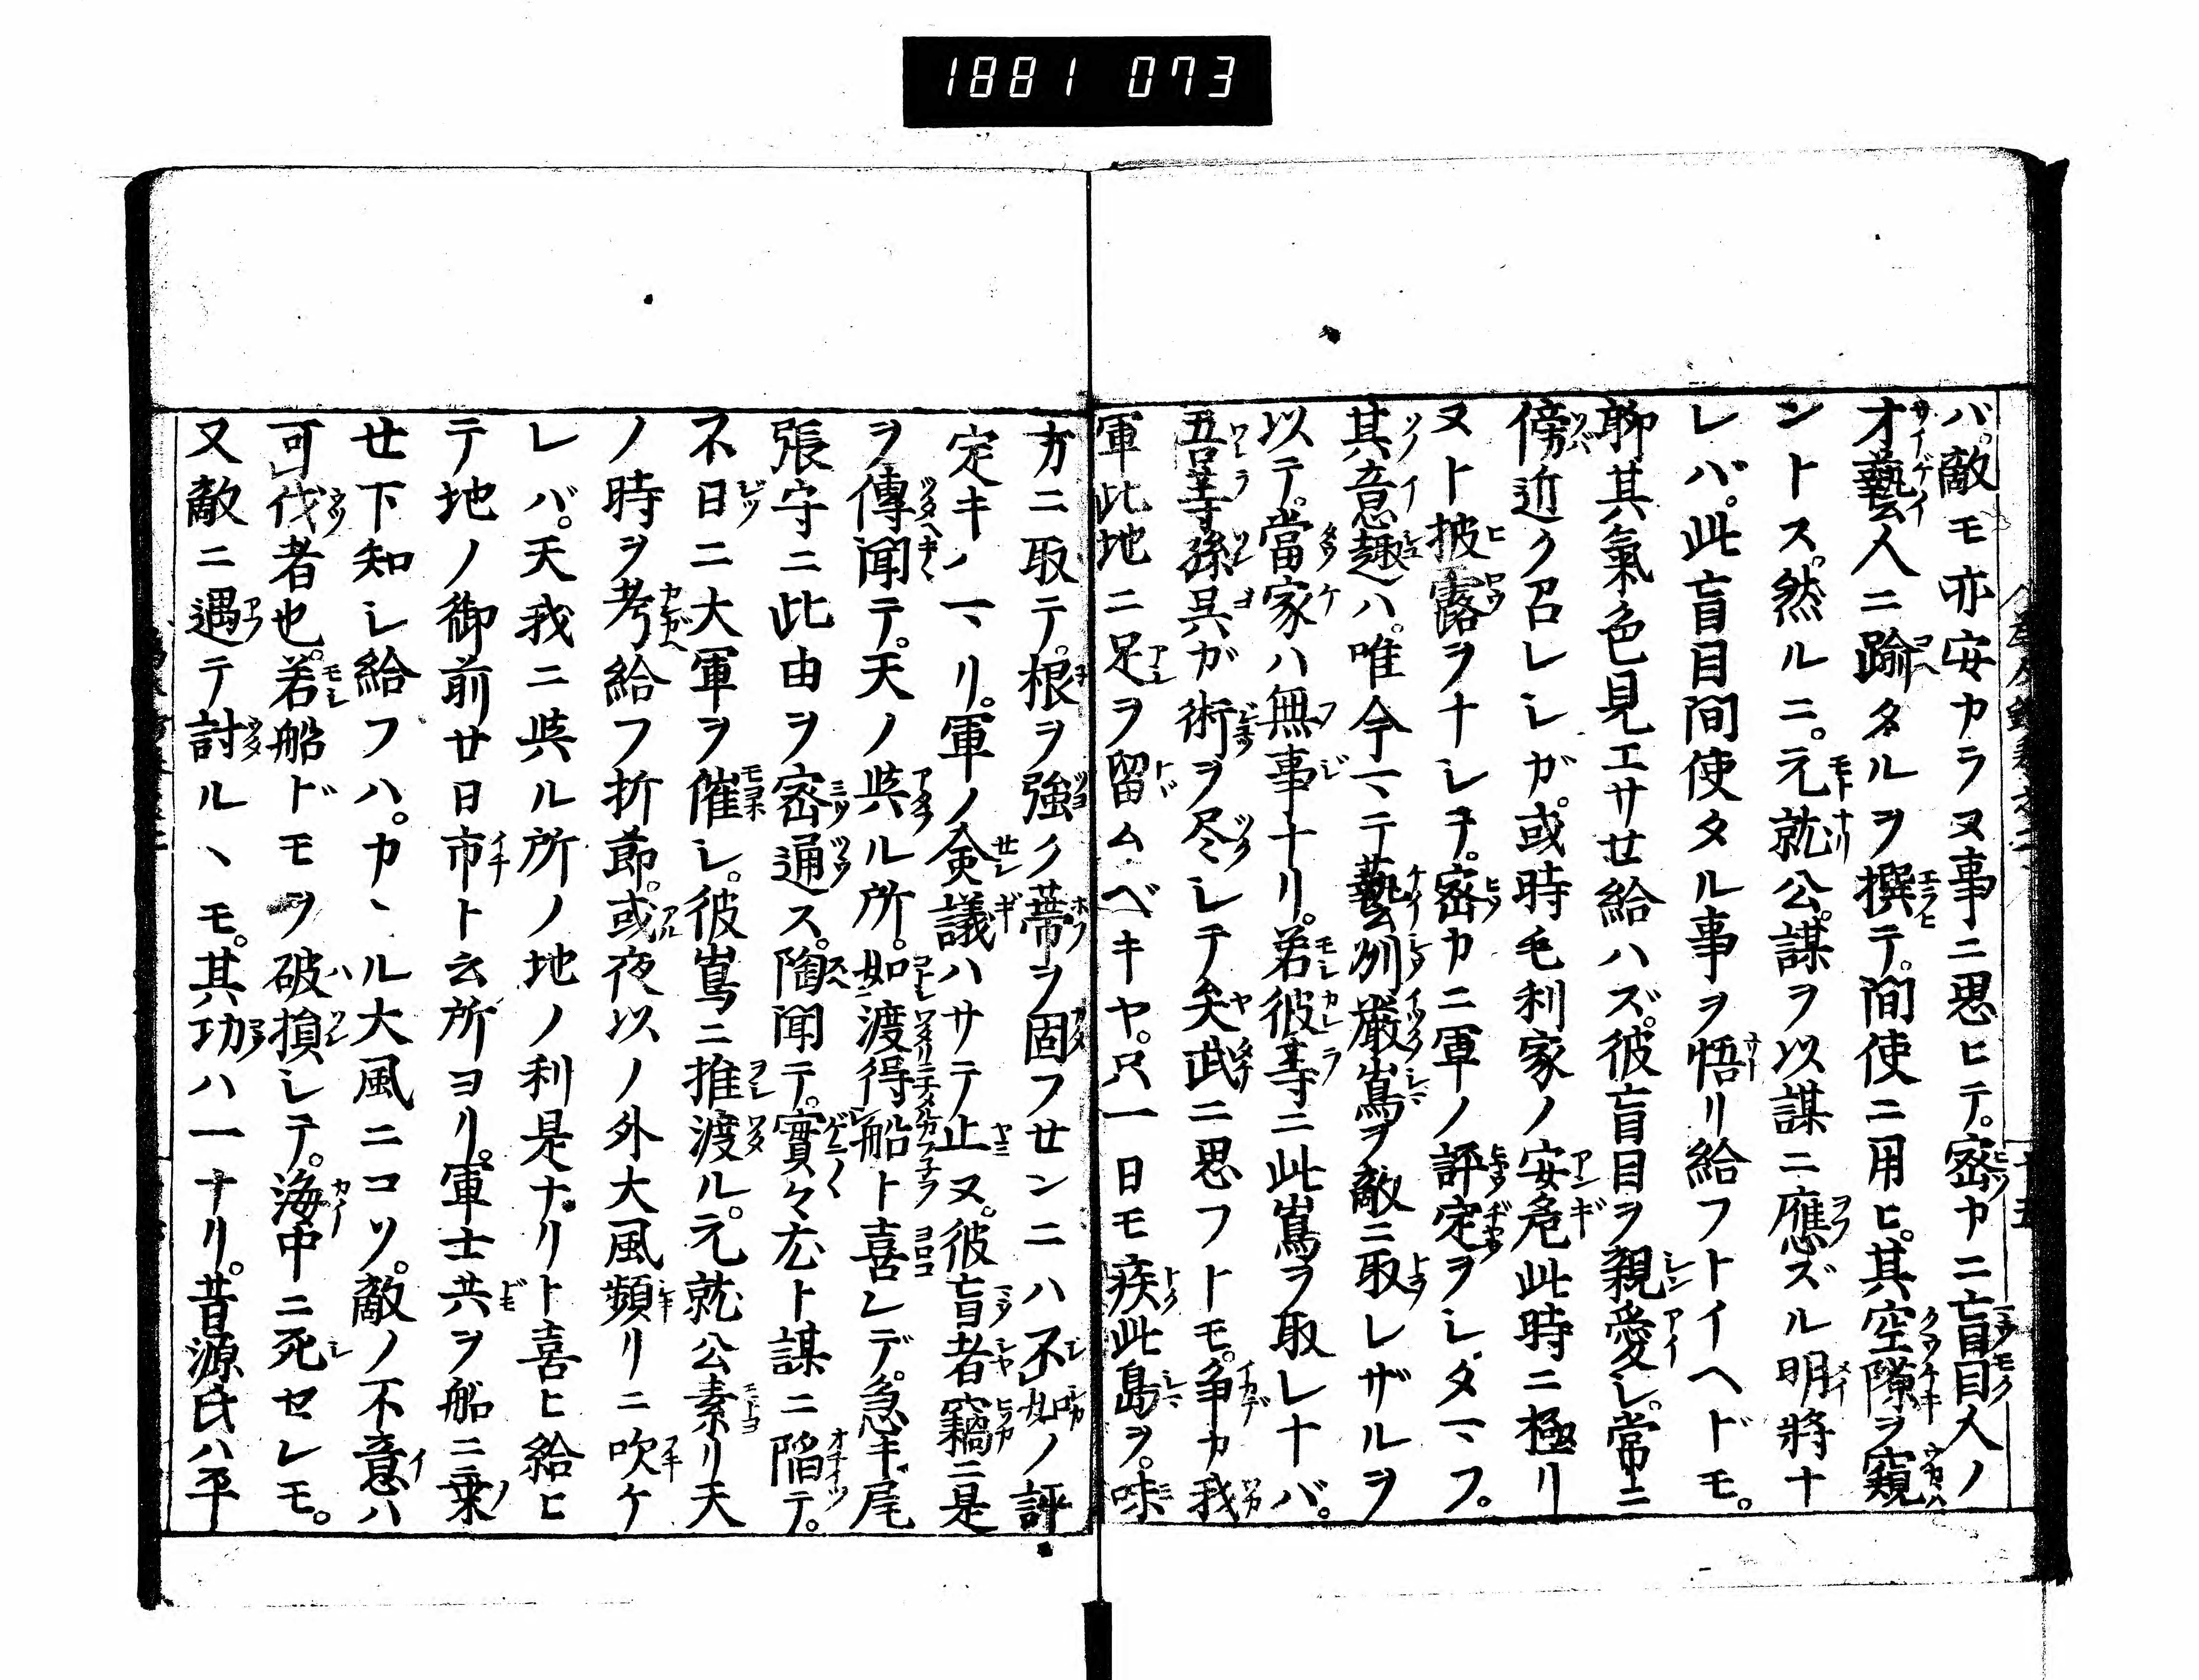 1881 073
バ。敵モ亦安カラヌ事ニ思ヒテ。密カニ盲目人ノ
才藝人ニ踰タルヲ撰テ。間使ニ用ヒ。其空隙ヲ窺
ントス。然ルニ。元就公。謀ヲ以謀ニ應ズル明將ナ
レバ。此盲目間使タル事ヲ悟リ給フトイヘドモ。
聊其氣色見エサせ給ハズ。彼盲目ヲ親愛シ。常ニ
傍近ク召レシガ。或時毛利家ノ安危此時ニ極リ
ヌト披露ヲナシテ。密カニ軍ノ評定ヲシタマフ。
其意趣ハ。唯今マテ藝列嚴嶌ヲ敵ニ取レザルヲ
以テ。當家ハ無事ナリ。若彼等ニ此嶌ヲ取レナバ。
吾等孫呉ガ術ヲ尽シテ矣武ニ思フトモ。争カ我
軍此地ニ足ヲ留ムベキヤ。只一日モ疾此島ヲ。味
方ニ取テ。根ヲ強ク蔕ヲ固フせンニハ不如ノ評
定キハマリ。軍ノ僉議ハサテ止ヌ。彼盲者竊ニ是
ヲ傳聞テ。天ノ與ル所。如渡得船ト喜レデ。急キ尾
張守ニ此由ヲ密通ス。陶聞テ。實々尤ト謀ニ陷テ。
不日ニ大軍ヲ催シ。彼嶌ニ推渡ル。元就公素リ天
ノ時ヲ考給フ折節。或夜以ノ外大風頻リニ吹ケ
レバ。天我ニ與ル所ノ地ノ利是ナリト喜ヒ給ヒ
テ地ノ御前廿日市ト云所ヨリ。軍士共ヲ船ニ乗
せ下知シ給フハ。カヽル大風ニコソ。敵ノ不意ハ
可伐者也。若船ドモヲ破損シテ。海中ニ死セシモ。
又敵ニ遇テ討ルヽモ。其功ハ一ナリ。昔源氏ハ平